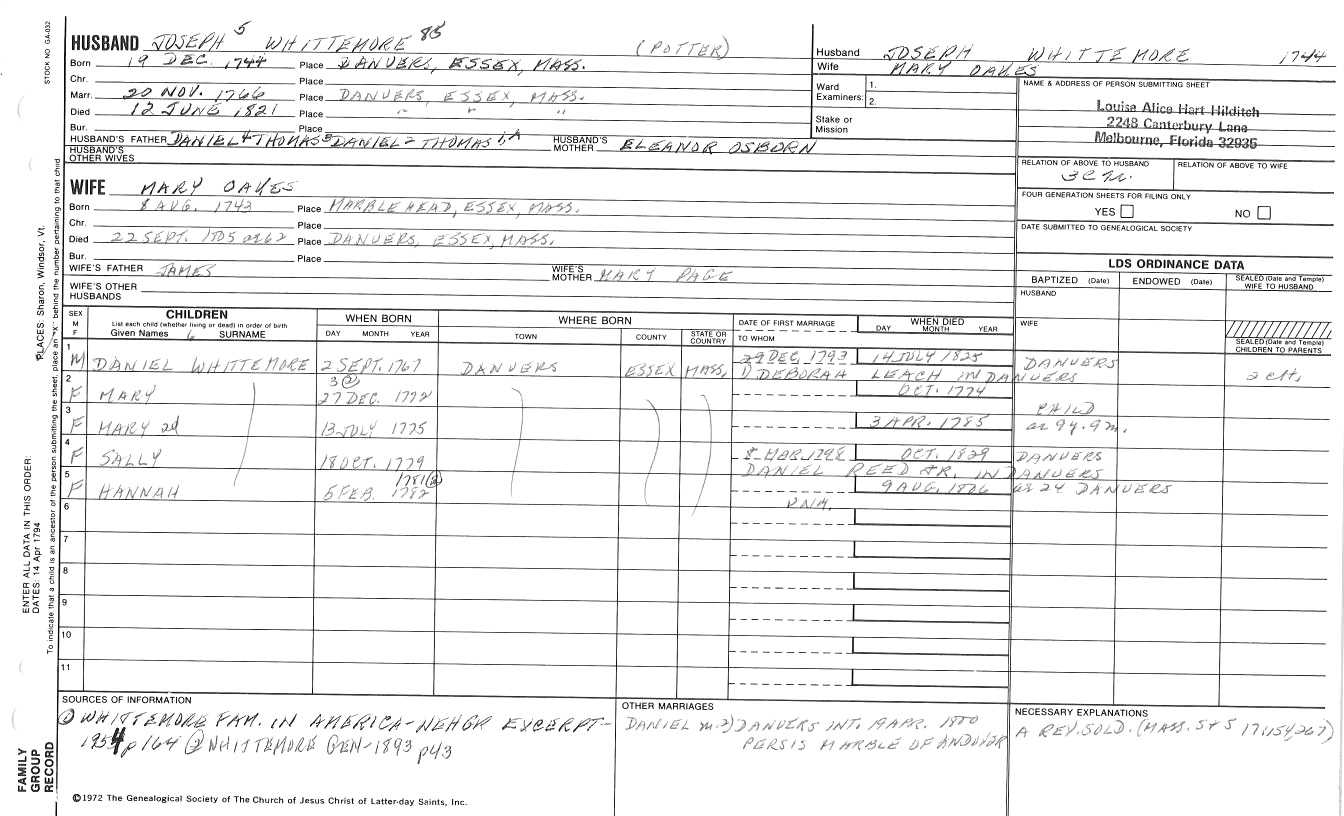 STOCK NO. GA-032
HUSBAND JOSEPH 5 WHITTEMORE 85 (POTTER)
Born 19 DEC. 1744 Place DANVERS, ESSEX, MASS.
Chr. Place
Marr. 20 NOV. 1766 Place DANVERS, ESSEX, MASS.
Died 12 JUNE 1821 Place " " "
Bur. Place
HUSBAND'S FATHER DANIEL 4 THOMAS 3 DANIEL 2 THOMAS 1, A HUSBAND'S MOTHER ELEANOR OSBORN
HUSBAND'S OTHER WIVES
WIFE MARY OAKES
Born 8 AUG. 1743 Place MARBLEHEAD, ESSEX, MASS.
Chr. Place
Died 22 SEPT. 1805 ae 62 Place DANVERS, ESSEX, MASS.
Bur. Place
WIFE'S FATHER JAMES WIFE'S MOTHER MARY PAGE
WIFE'S OTHER HUSBANDS
Husband JOSEPH WHITTEMORE 1744
Wife MARY OAKES
Ward Examiners: 1.
2.
Stake or Mission
NAME & ADDRESS OF PERSON SUBMITTING SHEET
Louise Alice Hart Hilditch
2248 Canterbury Lane
Melbourne, Florida 32935
RELATION OF ABOVE TO HUSBAND RELATION OF ABOVE TO WIFE
FOUR GENERATION SHEETS FOR FILING ONLY
YES NO
DATE SUBMITTED TO GENEALOGICAL SOCIETY
LDS ORDINANCE DATA
BAPTIZED (Date) ENDOWED (Date) SEALED (Date and Temple) WIFE TO HUSBAND
HUSBAND
WIFE
SEALED (Date and Temple) CHILDREN TO PARENTS
SEX M F
CHILDREN
List each child (whether living or dead) in order of birth
Given Names 6 SURNAME
WHEN BORN
DAY MONTH YEAR
WHERE BORN
TOWN COUNTY STATE OR COUNTRY
DATE OF FIRST MARRIAGE
TO WHOM
WHEN DIED
DAY MONTH YEAR
1 M DANIEL WHITTEMORE 2 SEPT. 1767 DANVERS ESSEX MASS. 29 DEC. 1793 14 JULY 1825 DANVERS
1) DEBORAH LEACH IN DANVERS 2 ch.
2 F MARY 3 (2) 27 DEC. 1772 OCT. 1774
3 F MARY 2d 13 JULY 1775 3 APR. 1785 CHILD ae 9y. 9m.
4 F SALLY 18 OCT. 1779 8 MAR. 1798 OCT. 1829 DANVERS
DANIEL REED JR. IN DANVERS
5 F HANNAH 5 FEB. 1782 1781 (2) 9 AUG. 1806 ae 24 DANVERS
6
7
8
9
10
11
SOURCES OF INFORMATION
(1) WHITTEMORE FAM. IN AMERICA-NEHGR EXCERPT-
1954 p 164 (2) WHITTEMORE GEN-1893 p43
OTHER MARRIAGES
DANIEL m. 2) DANVERS INT. 19 APR. 1800
PERSIS MARBLE OF ANDOVER
NECESSARY EXPLANATIONS
A REV. SOLD. (MASS. S+S 17:154,267)
©1972 The Genealogical Society of The Church of Jesus Christ of Latter-day Saints, Inc.
FAMILY
GROUP
RECORD
ENTER ALL DATA IN THIS ORDER:
DATES: 14 Apr 1794
PLACES: Sharon, Windsor, Vt.
To indicate that a child is an ancestor of the person submitting the sheet, place an "X" behind the number pertaining to that child